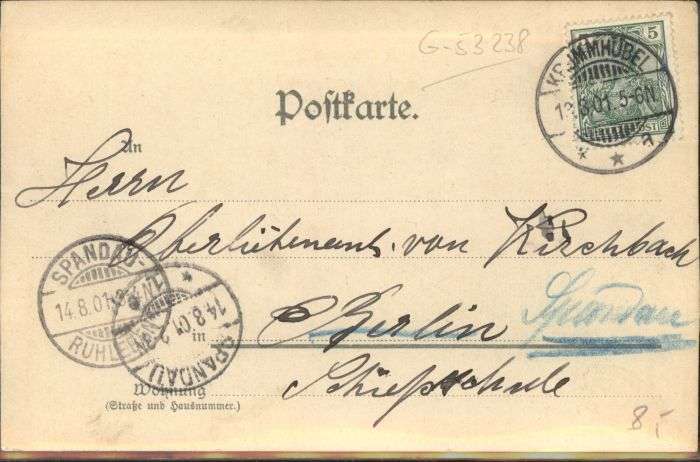 G-53238
5
KRUMMHÜBEL
13.8.01. 5-6N.
a
Postkarte.
An
Herrn
Oberlieutenant von Kirchbach
SPANDAU-
14.8.01.
RUHLEBEN
14.8.01
SPANDAU
in
Berlin
Spandau
Schießschule
Wohnung
(Straße und Hausnummer.)
8,-